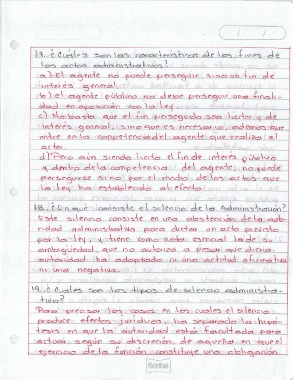 17. ¿Cuáles son las características de los fines de
los actos administrativos?
a) El agente no puede perseguir sino un fin de
interés general.
b) el agente público no debe perseguir una finali-
dad en oposición con la ley.
c) No basta que el fin perseguido sea lícito y de
interés general, sino que es necesario, además que
entre en la competencia del agente que realiza el
acto.
d) Pero aún siendo lícito el fin de interés público
y dentro de la competencia del agente, no puede
perseguirse sino por medio de los actos que
la ley ha establecido al efecto.
18. ¿En qué consiste el silencio de la Administración?
Este silencio consiste en una abstención de la auto-
ridad administrativa para dictar un acto previsto
por la ley, y tiene como nota esencial la de su
ambigüedad, que no autoriza a pesar que dicha
autoridad ha adoptado ni una actitud afirmativa
ni una negativa.
19. ¿Cuáles son los tipos de silencio administra-
tivo?
Para precisar los casos en los cuales el silencio
produce efectos jurídicos, ha separado la hipó-
tesis en que la autoridad está facultada para
actuar según su discreción, de aquella en que el
ejercicio de la función constituye una obligación
Scribe